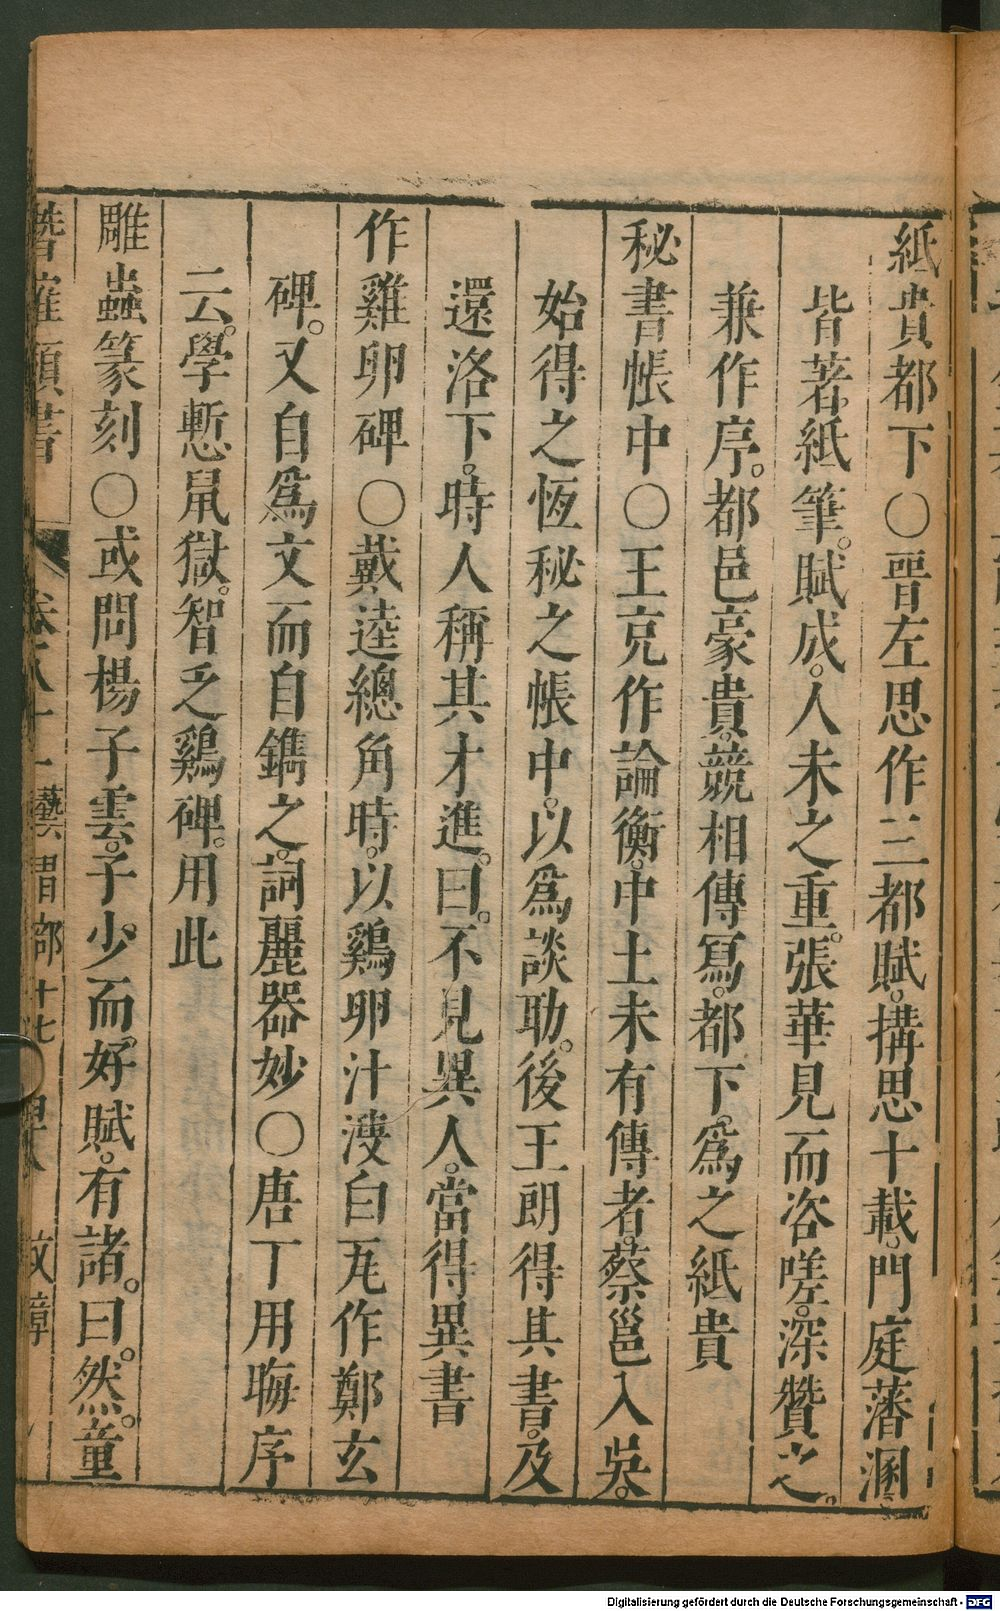 紙貴都下○晉左思作三都賦。搆思十載。門庭藩溷。
皆著紙筆。賦成。人未之重。張華見而咨嗟。深贊之。
兼作序。都邑豪貴。競相傳寫。都下。爲之紙貴
秘書帳中○王充作論衡。中土未有傳者。蔡邕入吳。
始得之恆秘之帳中。以爲談助。後王朗得其書。及
還洛下。時人稱其才進。曰。不見異人。當得異書
作雞卵碑○戴逵總角時。以鷄卵汁溲白瓦作鄭玄
碑。又自爲文而自鐫之。詞麗器妙○唐丁用晦序
云。學慙鼠獄。智乏鷄碑。用此
雕蟲篆刻○或問楊子雲。子少而好賦。有諸。曰。然。童
卷八十一 藝習部十七 文章
Digitalisierung gefördert durch die Deutsche Forschungsgemeinschaft - DFG